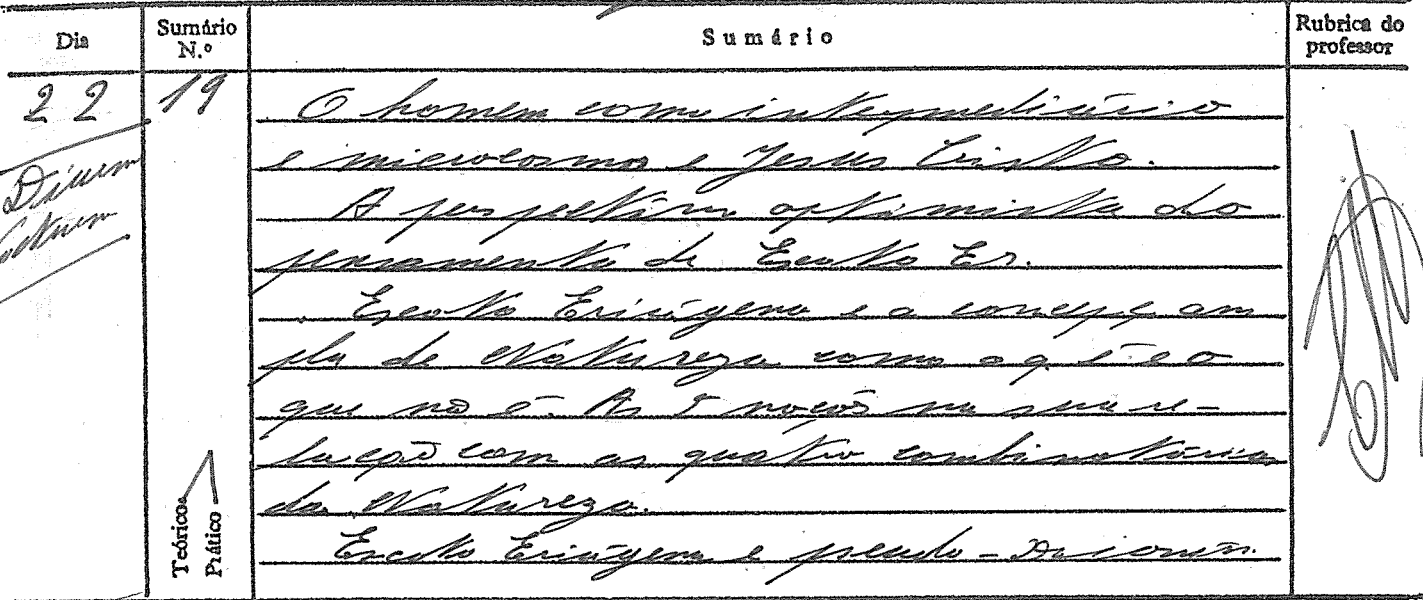 Dia
Sumário N.º
Sumário
Rubrica do professor
22
19
O homem como intermediário
e microcosmos e Jesus Cristo.
A perspectiva optimista do
pensamento de Escoto Er.
Escoto Eriúgena e a concepç. am
pla de Natureza como o q é e o
que nõ é. As 5 noçoẽs na sua re-
laçõ com as quatro combinatórias
da Natureza.
Escoto Eriúgena e pseudo-
Teórico
Prático